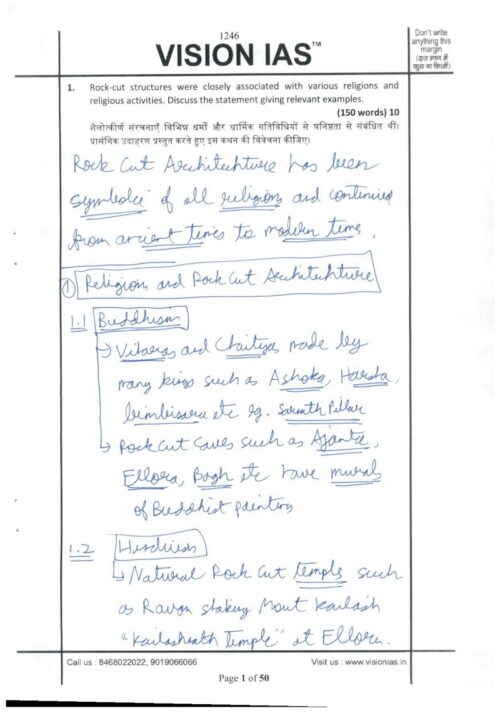 1246
VISION IAS™
Don't write
anything this
margin
(इस भाग में
कुछ ना लिखें)
1. Rock-cut structures were closely associated with various religions and
religious activities. Discuss the statement giving relevant examples.
(150 words) 10
शैलोत्कीर्ण संरचनाएँ विभिन्न धर्मों और धार्मिक गतिविधियों से घनिष्ठता से संबंधित थीं।
प्रासंगिक उदाहरण प्रस्तुत करते हुए इस कथन की विवेचना कीजिए।
Rock Cut Architechture has been
symbolic of all religions and continued
from ancient times to modern time.
① Religion and Rock Cut Architechture
1.1 Buddhism
→ Viharas and Chaitya made by
many kings such as Ashoka, Harsha,
bimbisara etc eg. Sarnath Pillar
→ Rock Cut Caves such as Ajanta,
Ellora, Bagh etc have murals
of Buddhist painting
1.2 Hinduism
→ Natural Rock Cut temple such
as Ravan shaking Mout Kailash
"Kailashnath Temple" at Ellora.
Call us : 8468022022, 9019066066
Visit us : www.visionias.in
Page 1 of 50